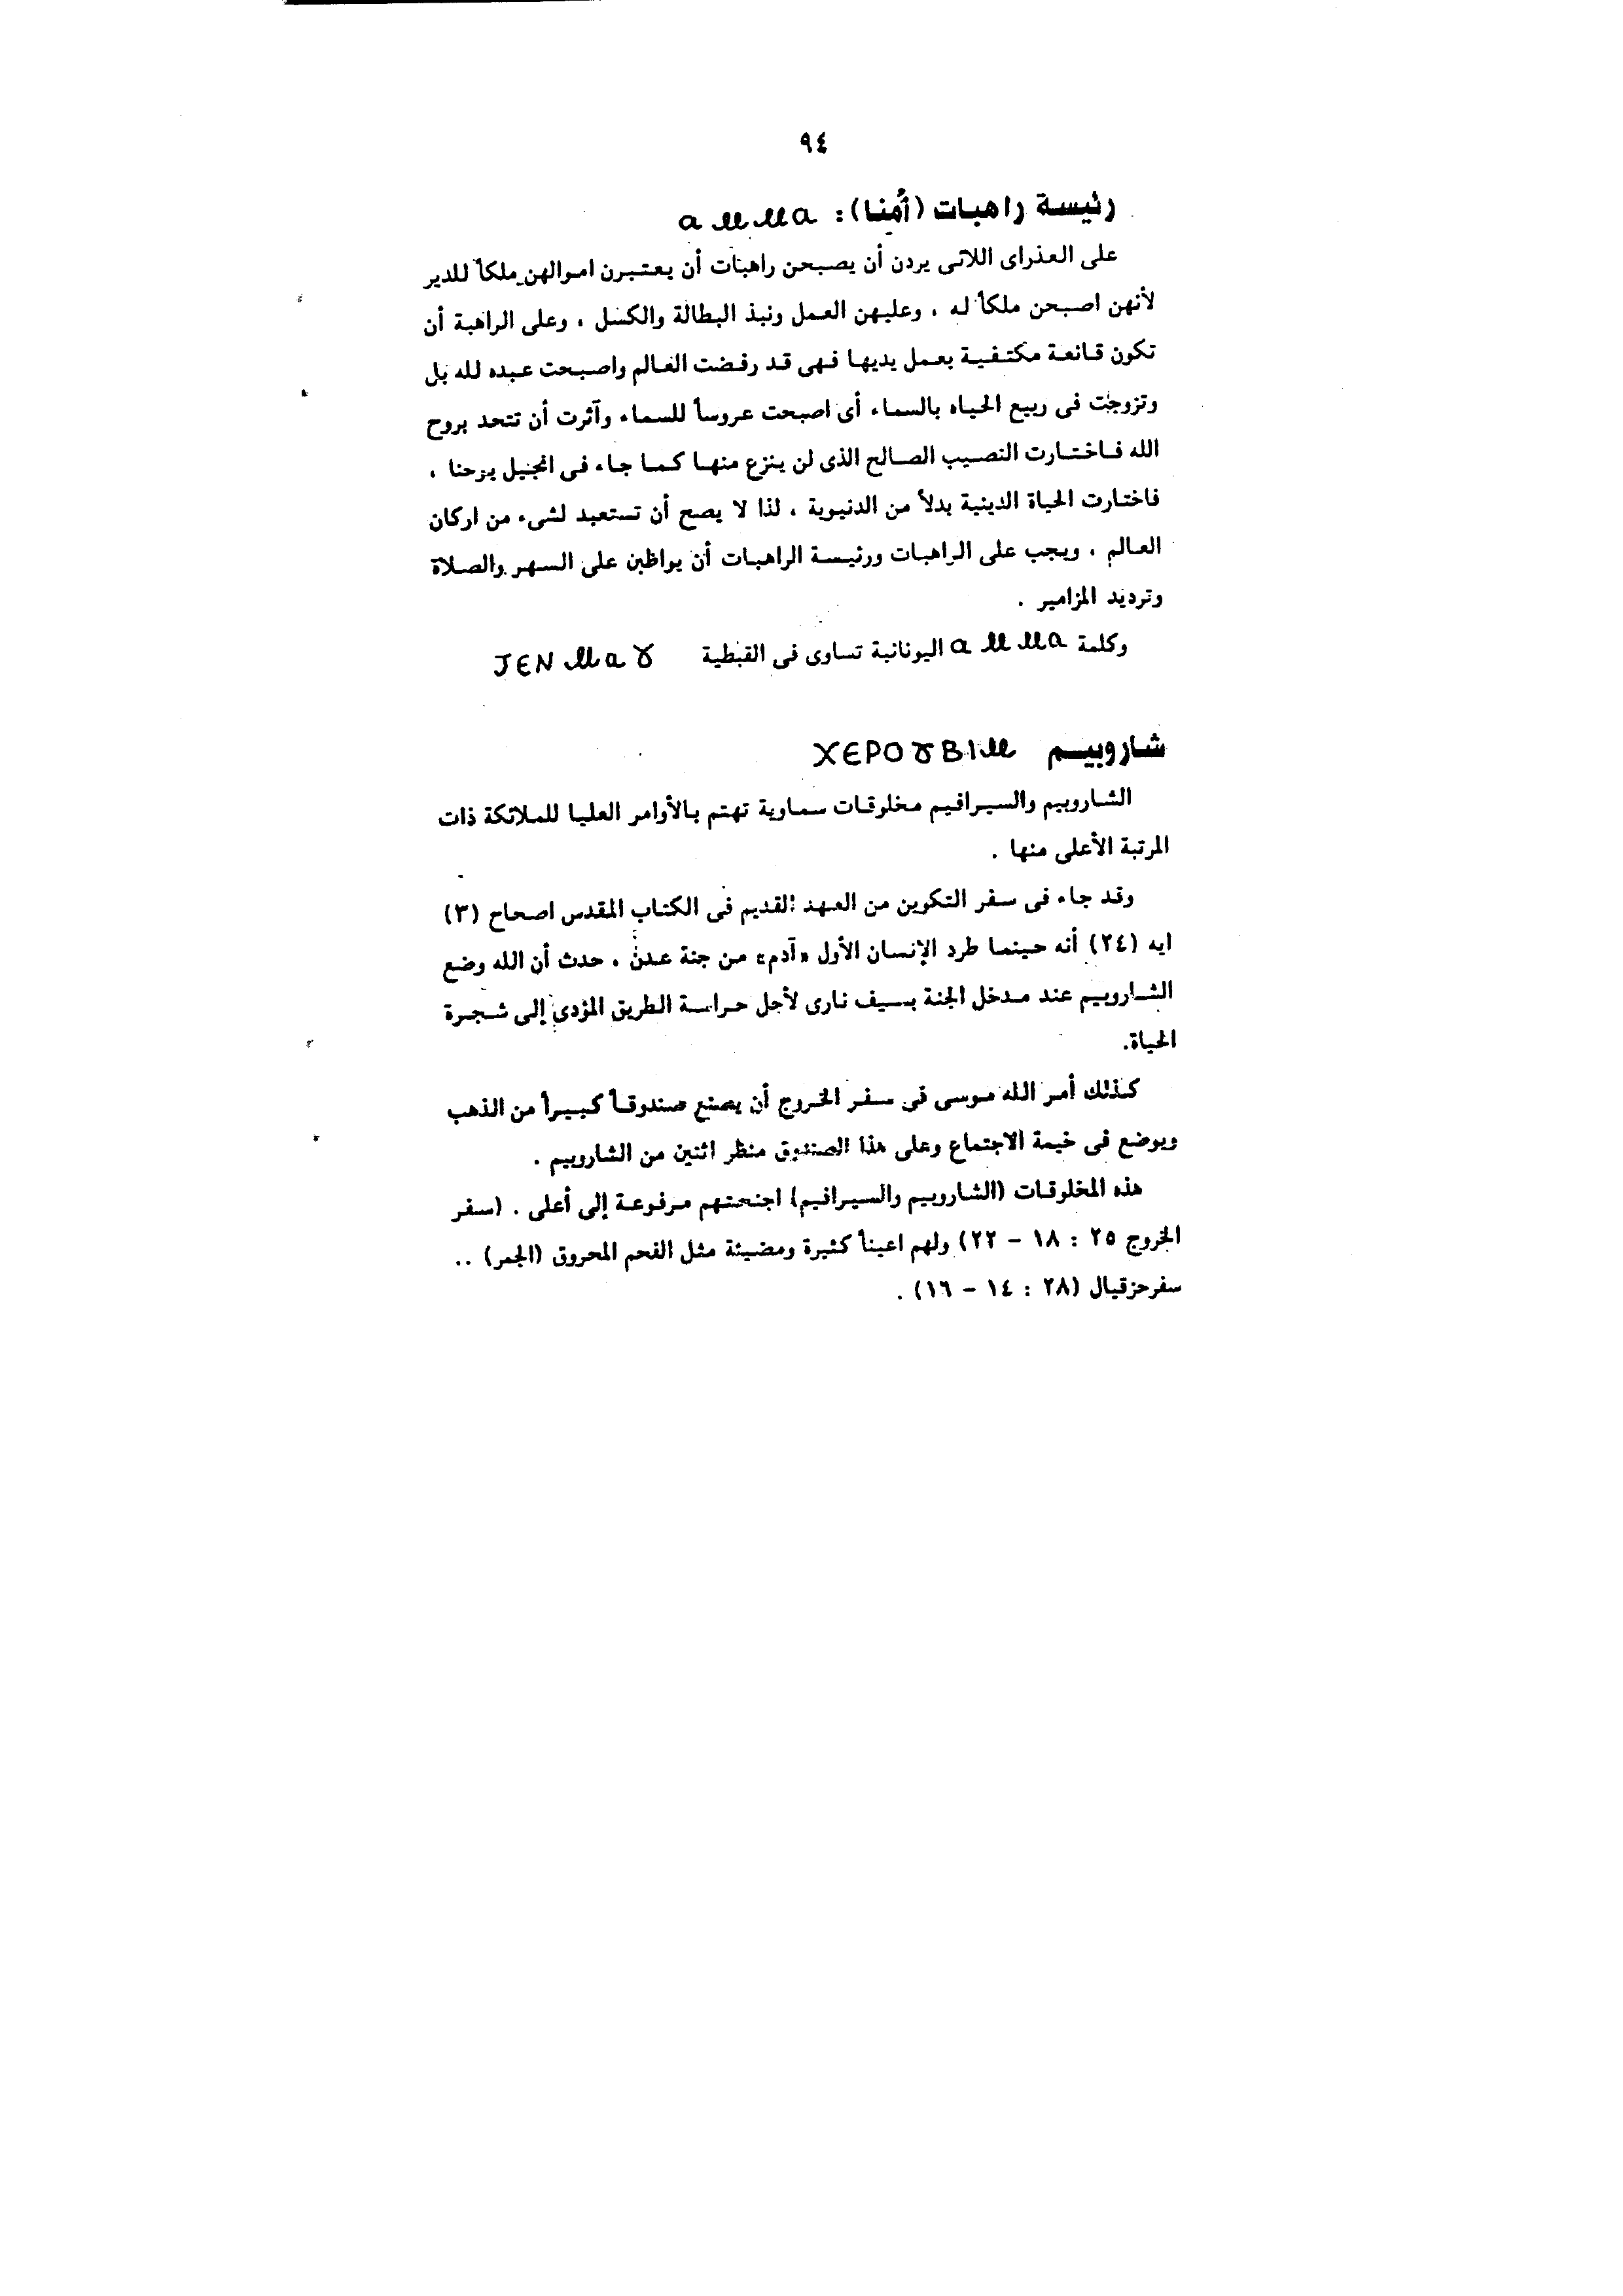 ٩٤
رئيسة راهبات (أمنا) : ⲁⲙⲙⲁ
على العذراى اللاتى يردن أن يصبحن راهبات أن يعتبرن اموالهن ملكاً للدير
لأنهن اصبحن ملكاً له ، وعليهن العمل ونبذ البطالة والكسل ، وعلى الراهبة أن
تكون قانعة مكتفية بعمل يديها فهى قد رفضت العالم واصبحت عبده لله بل
وتزوجت فى ربيع الحياه بالسماء أى اصبحت عروساً للسماء وآثرت أن تتحد بروح
الله فاختارت النصيب الصالح الذى لن ينزع منها كما جاء فى انجيل يوحنا ،
فاختارت الحياة الدينية بدلاً من الدنيوية ، لذا لا يصح أن تستعبد لشىء من اركان
العالم ، ويجب على الراهبات ورئيسة الراهبات أن يواظبن على السهر والصلاة
وترديد المزامير .
وكلمة ⲁⲙⲙⲁ اليونانية تساوى فى القبطية ϯⲉⲛⲙⲁⲩ
شاروبيم ⲭⲉⲣⲟⲩⲃⲓⲙ
الشاروبيم والسيرافيم مخلوقات سماوية تهتم بالأوامر العليا للملائكة ذات
المرتبة الأعلى منها .
وقد جاء فى سفر التكوين من العهد القديم فى الكتاب المقدس اصحاح (٣)
ايه (٢٤) أنه حينما طرد الإنسان الأول «آدم» من جنة عدن ، حدث أن الله وضع
الشاروبيم عند مدخل الجنة بسيف نارى لأجل حراسة الطريق المؤدى إلى شجرة
الحياة.
كذلك أمر الله موسى فى سفر الخروج أن يصنع صندوقاً كبيراً من الذهب
ويوضع فى خيمة الاجتماع وعلى هذا الصندوق منظر اثنين من الشاروبيم .
هذه المخلوقات (الشاروبيم والسيرافيم) اجنحتهم مرفوعة إلى أعلى . (سفر
الخروج ٢٥ : ١٨ - ٢٢) ولهم اعيناً كثيرة ومضيئة مثل الفحم المحروق (الجمر) ..
سفرحزقيال (٢٨ : ١٤ - ١٦) .